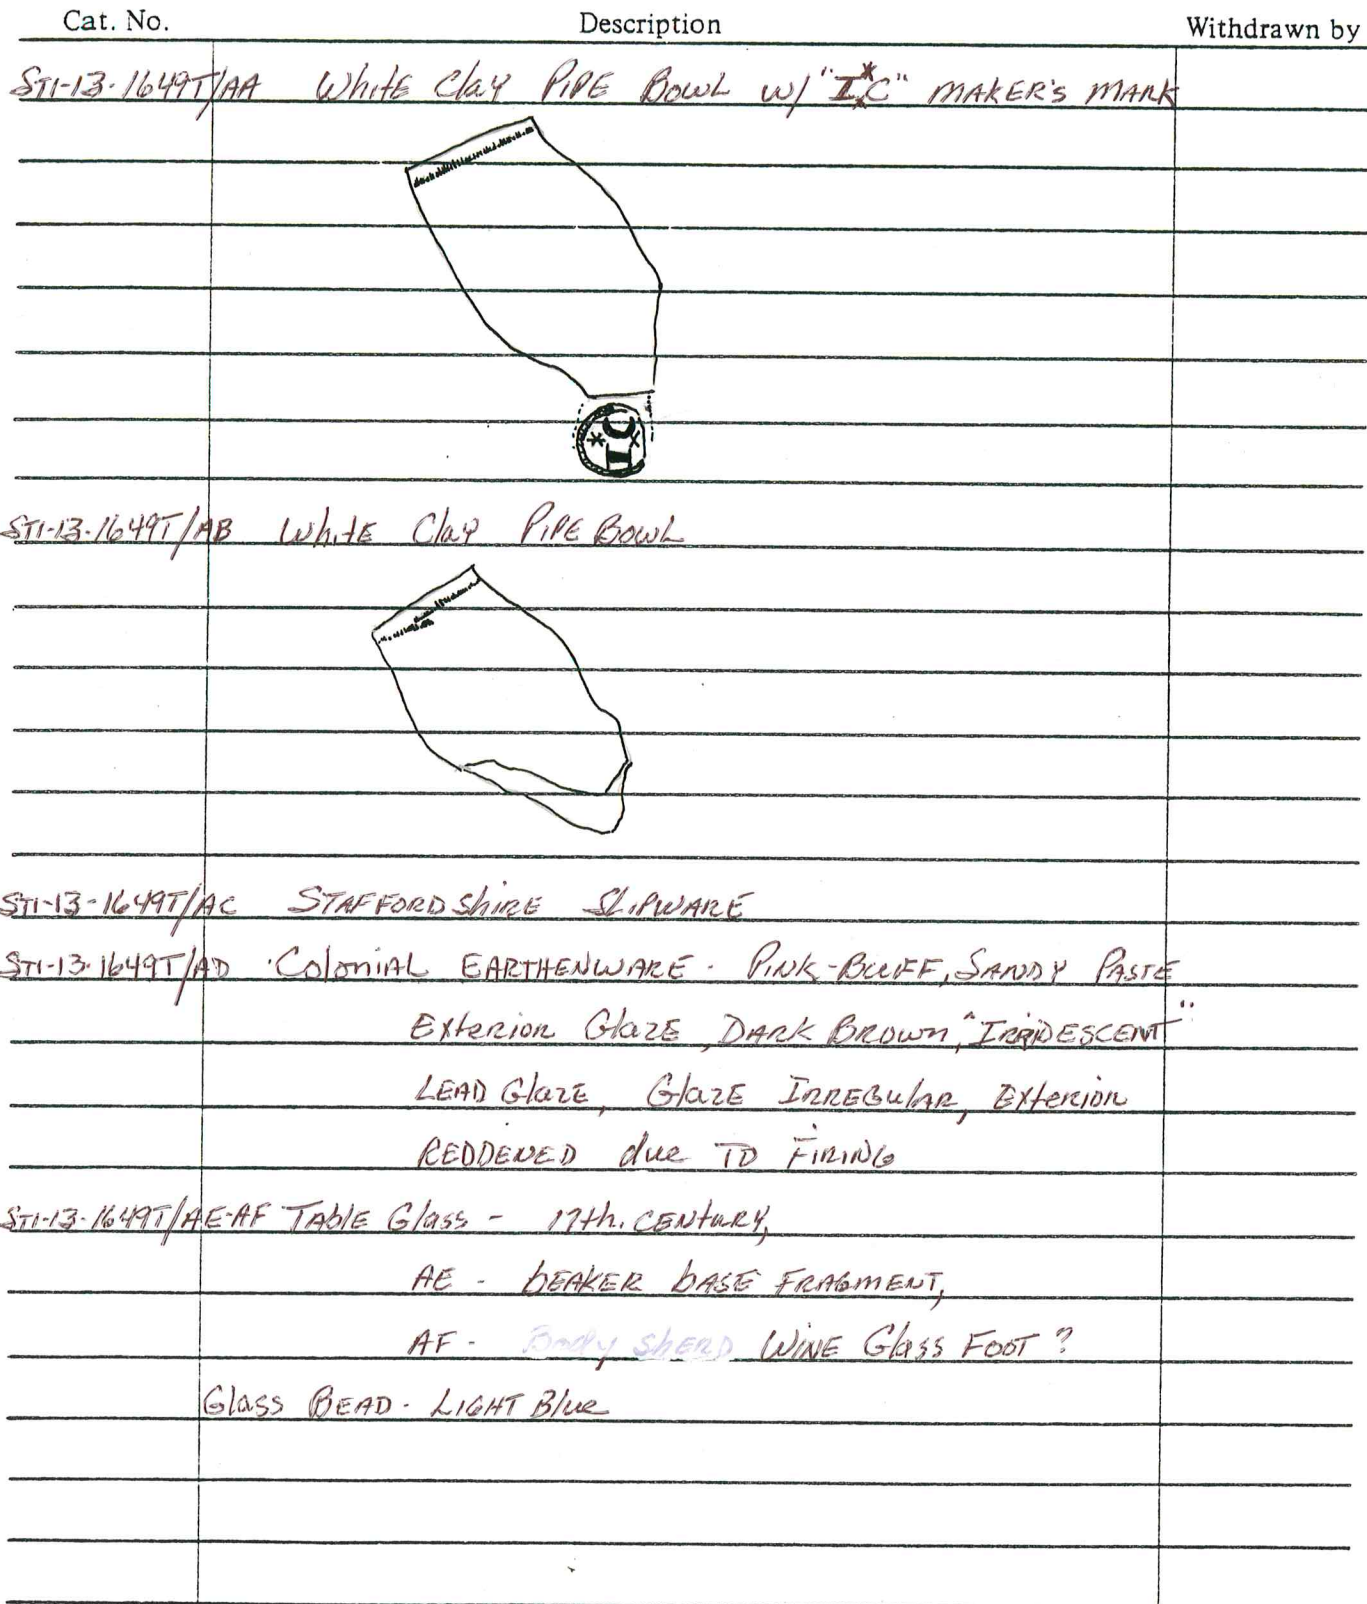 Cat. No. Description Withdrawn by
ST1-13-1649T/AA White Clay PIPE Bowl w/ "I*C" MAKER'S MARK
ST1-13-1649T/AB White Clay PIPE Bowl
ST1-13-1649T/AC STAFFORDShire SLIPWARE
ST1-13-1649T/AD Colonial EARTHENWARE - PINK-BUFF, SANDY PASTE
Exterior Glaze, DARK BROWN, "IRRIDESCENT"
LEAD Glaze, Glaze IRREGULAR, Exterior
REDDENED due TO FIRING
ST1-13-1649T/AE-AF TABLE Glass - 17th. CENTURY,
AE - bEAKER bASE FRAGMENT,
AF - Body SHERD WINE Glass FOOT ?
Glass BEAD - LIGHT Blue